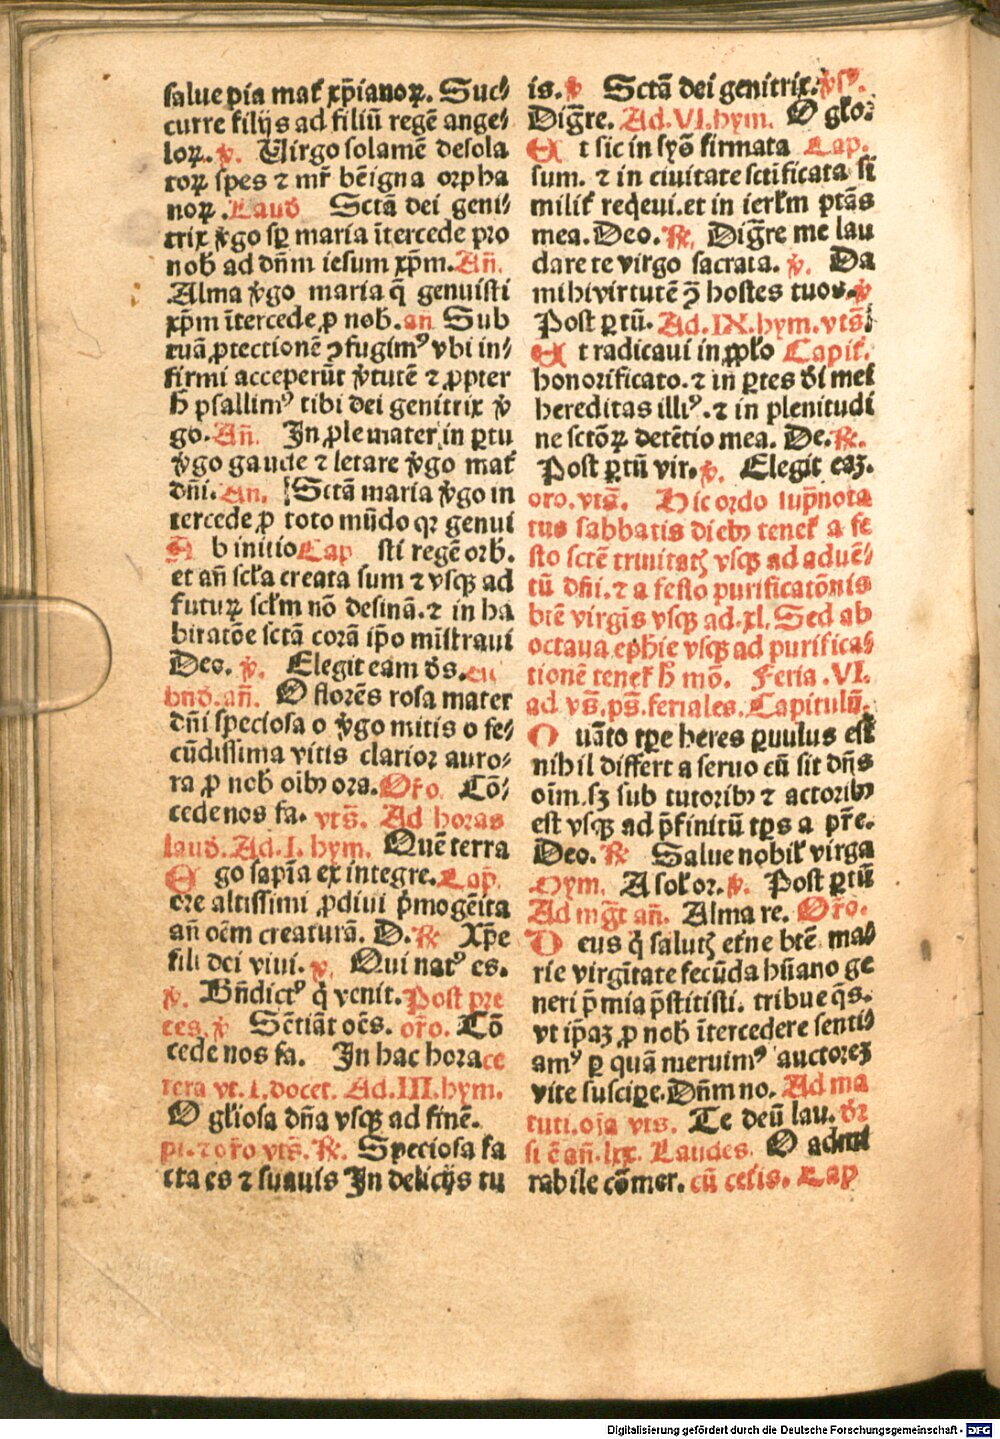 salue pia mat̄ xp̄ianoꝝ. Suc⸗
curre filijs ad filiū regē ange⸗
loꝝ. ℣. Uirgo solamē desola
toꝝ spes ⁊ mr̄ bēigna orpha
noꝝ. Laud̄ Sctā dei geni⸗
trix v̄go sꝑ maria ītercede pro
nob̄ ad dn̄m iesum xp̄m. An̄.
Alma v̄go maria q̄ genuisti
xp̄m ītercede ꝓ nob̄. an̄ Sub
tuā ꝓtectionē ↄfugimꝰ vbi in⸗
firmi acceperūt v̄tutē ⁊ ꝓpter
h̄ psallimꝰ tibi dei genitrix v̄
go. An̄. In ꝓle mater in ꝑtu
v̄go gaude ⁊ letare v̄go mat̄
dn̄i. An. Sctā maria v̄go in
tercede ꝓ toto mūdo qꝛ genui
A b initio Cap sti regē orb̄.
et an̄ scła creata sum ⁊ vsqꝫ ad
futuꝝ scłm nō desinā. ⁊ in ha
bitatōe sctā corā ip̄o mīstraui
Deo. ℣. Elegit eam d̄s. eu
bnd̄. an̄. O florēs rosa mater
dn̄i speciosa o v̄go mitis o fe⸗
cūdissima vitis clarior auro⸗
ra ꝓ nob̄ oībꝫ ora. Or̄o. Cō⸗
cede nos fa. vts̄. Ad horas
laud̄. Ad. I. hym. Quē terra
E go sapīa ex integre. Cap.
ore altissimi ꝓdiui p̄mogēita
an̄ oēm creaturā. D. ℟ Xp̄e
fili dei viui. ℣. Qui natꝰ es.
℣. Bn̄dictꝰ q̄ venit. Post pre
ces. ℣ Sētiāt oēs. or̄o. Cō
cede nos fa. In hac hora ce
tera vt. I. docet. Ad. III. hym.
O gl̄iosa dn̄a vsqꝫ ad finē.
pi. ⁊ or̄o vts̄. ℟. Speciosa fa
cta es ⁊ suauis In delicijs tu
is. ℣ Sctā dei genitrix. ℣sꝰ.
Diḡre. Ad. VI. hym. O gl̄o⸗
E t sic in syō firmata Cap.
sum. ⁊ in ciuitate sctificata si
milit̄ reqeui. et in ierłm ptās
mea. Deo. ℟. Diḡre me lau
dare te virgo sacrata. ℣. Da
mihi virtutē ↄ̄ hostes tuos. ℣
Post ꝑtū. Ad. IX. hym. vts̄.
E t radicaui in ꝓpło Capit̄.
honorificato. ⁊ in ꝑtes d̄i mei
hereditas illiꝰ. ⁊ in plenitudi
ne sctōꝝ detētio mea. De. ℟.
Post ꝑtū vir. ℣. Elegit eaꝫ.
oro. vts̄. Hic ordo sup̄nota
tus sabbatis diebꝫ tenet̄ a fe
sto sctē trinitatꝫ vsqꝫ ad aduē⸗
tū dn̄i. ⁊ a festo purificatōnis
btē virgīs vsqꝫ ad. xl. Sed ab
octaua ephie vsqꝫ ad purifica⸗
tionē tenet̄ h̄ mō. Feria. VI.
ad vs̄. ps̄. feriales. Capitulū.
Q uāto tꝑe heres ꝑuulus est
nihil differt a seruo cū sit dn̄s
oīm. sꝫ sub tutoribꝫ ⁊ actoribꝫ
est vsqꝫ ad p̄finitū tꝑs a pr̄e.
Deo. ℟ Salue nobil̄ virga
Hym. A sol̄ or. ℣. Post ꝑtū
Ad mḡt an̄. Alma re. Or̄o.
D eus q̄ salutꝫ etn̄e btē ma⸗
rie virgītate fecūda hūano ge
neri p̄mia p̄stitisti. tribue q̄s.
vt ip̄aꝫ ꝓ nob̄ ītercedere senti⸗
amꝰ ꝑ quā meruimꝰ auctoreꝫ
vite suscipe. Dn̄m no. Ad ma
tuti. oīa vts. Te deū lau. v̄r
si ē an̄. lxx. Laudes. O admi
rabile cōmer. cū cet̄is. Cap
Digitalisierung gefördert durch die Deutsche Forschungsgemeinschaft - DFG